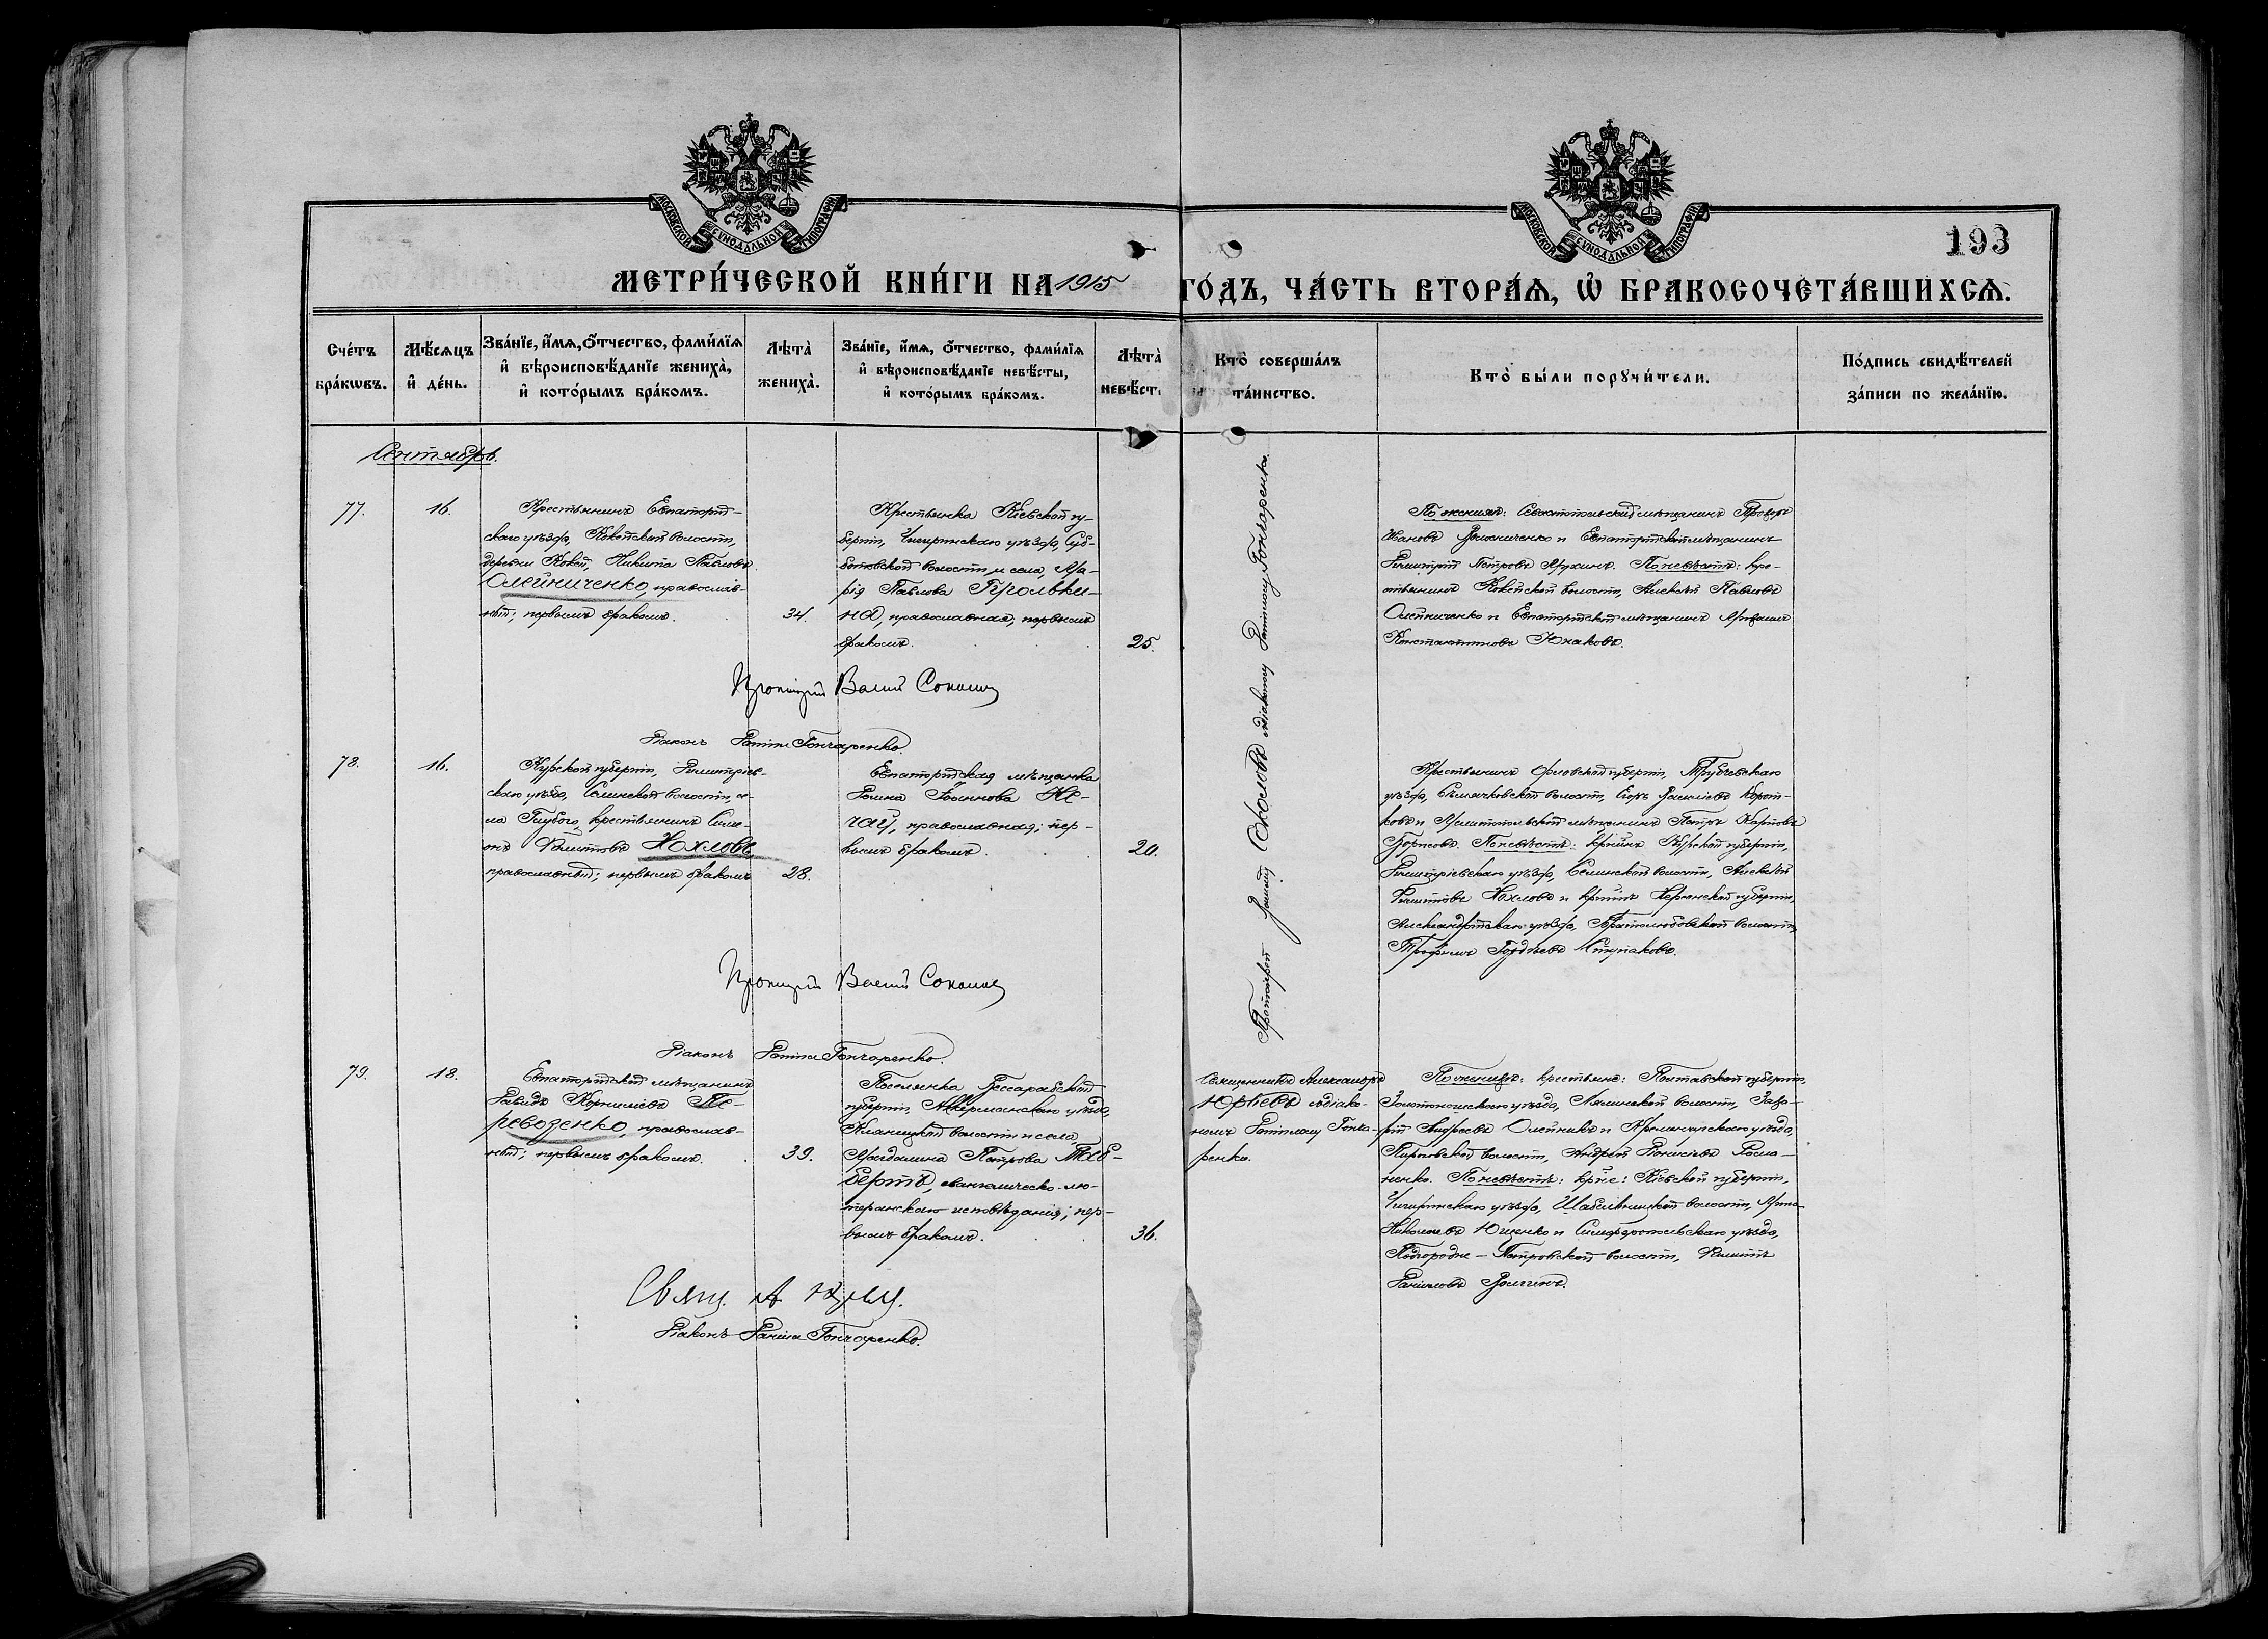 МОСКОВСКОЙ СѴНОДАЛЬНОЙ ТИПОГРАФІИ
МОСКОВСКОЙ СѴНОДАЛЬНОЙ ТИПОГРАФІИ
193
МЕТРИ́ЧЕСКОЙ КНИ́ГИ НА 1915 ГО́ДЪ, ЧА́СТЬ ВТОРА́Ѧ, Ѡ҆ БРАКОСОЧЕТА́ВШИХСѦ.
Сче́тъ бра́кѡвъ.
Мѣ́сѧцъ и҆ де́нь.
Зва́нїе, и҆́мѧ, ѻ҆́тчество, фамі́лїѧ и҆ вѣроисповѣ́данїе жениха̀, и҆ кото́рымъ бра́комъ.
Лѣта̀ жениха̀.
Зва́нїе, и҆́мѧ, ѻ҆́тчество, фами́лїѧ и҆ вѣроисповѣ́данїе невѣ́сты, и҆ кото́рымъ бра́комъ.
Лѣта̀ невѣ́ст
Кто̀ соверша́лъ та́инство.
Кто̀ бы́ли порꙋчи́тели.
По́дпись свидѣ́телей за́писи по жела́нїю.
Сентябрь.
77.
16.
Крестьянинъ Евпаторій-
скаго уѣзда, Кокейской волости,
деревни Кокей, Никита Павловъ
Олейниченко, православ-
ный; первымъ бракомъ.
34.
Крестьянка Кіевской гу-
берніи, Чигиринскаго уѣзда, Суб-
ботовской волости и села, Ма-
рія Павлова
на, православная; первымъ
бракомъ.
25.
Протоіерей Соколовъ діакономъ Даніиломъ Гончаренко.
По женихѣ: Севастопольскій мѣщанинъ
Ивановъ и Евпаторійскій мѣщанинъ
Димитрій Петровъ По невѣстѣ: кре-
стьянинъ Кокейской волости, Алексѣй Павловъ
Олейниченко и Евпаторійскій мѣщанинъ
Константиновъ Юнаковъ.
Протоіерей Соколовъ
Діаконъ Даніилъ Гончаренко.
78.
16.
Курской губерніи, Димитріев-
скаго уѣзда, Селинской волости, се-
ла крестьянинъ Симе-
онъ Филипповъ Нохловъ,
православный; первымъ бракомъ
28.
Евпаторійская мѣщанка
Іоаннова Не-
чай, православная; пер-
вымъ бракомъ.
20.
Крестьянинъ Орловской губерніи, Трубчевскаго
уѣзда, волости, Егоръ
и Мелитопольскій мѣщанинъ Петръ Карповъ
Борисовъ. По невѣстѣ: кр-нинъ Курской губерніи,
Димитріевскаго уѣзда, Селинской волости, Алексѣй
Филипповъ Нохловъ и Херсонской губерніи,
Александрійскаго уѣзда, Братолюбовской волости,
Трофимъ
Протоіерей Соколовъ
Діаконъ Даніилъ Гончаренко.
79.
18.
Евпаторійскій мѣщанинъ
Давидъ Корниліевъ Пе-
ревозенко, православ-
ный; первымъ бракомъ.
39.
Поселянка Бессарабской
губерніи, Аккерманскаго уѣзда,
Кляницкой волости и села,
Магдалина Петрова Теб-
бертъ, евангелическо-лю-
теранскаго исповѣданія; пер-
вымъ бракомъ.
36.
Священникъ Александръ
Юрьевъ съ діако-
номъ Даніиломъ Гонча-
ренко.
По женихѣ: крестьяне: Полтавской губерніи,
Золотоношскаго уѣзда, волости, Заха-
рій Андреевъ Олейникъ и Кременчугскаго уѣзда,
волости, Андрей
ненко. По невѣстѣ: кр-не: Кіевской губерніи,
Чигиринскаго уѣзда, Шабельницкой волости,
Николаевъ Ющенко и Симферопольскаго уѣзда,
Подгородне-Петровской волости, Филиппъ
Даниловъ
Свящ. А.
Діаконъ Даніилъ Гончаренко.